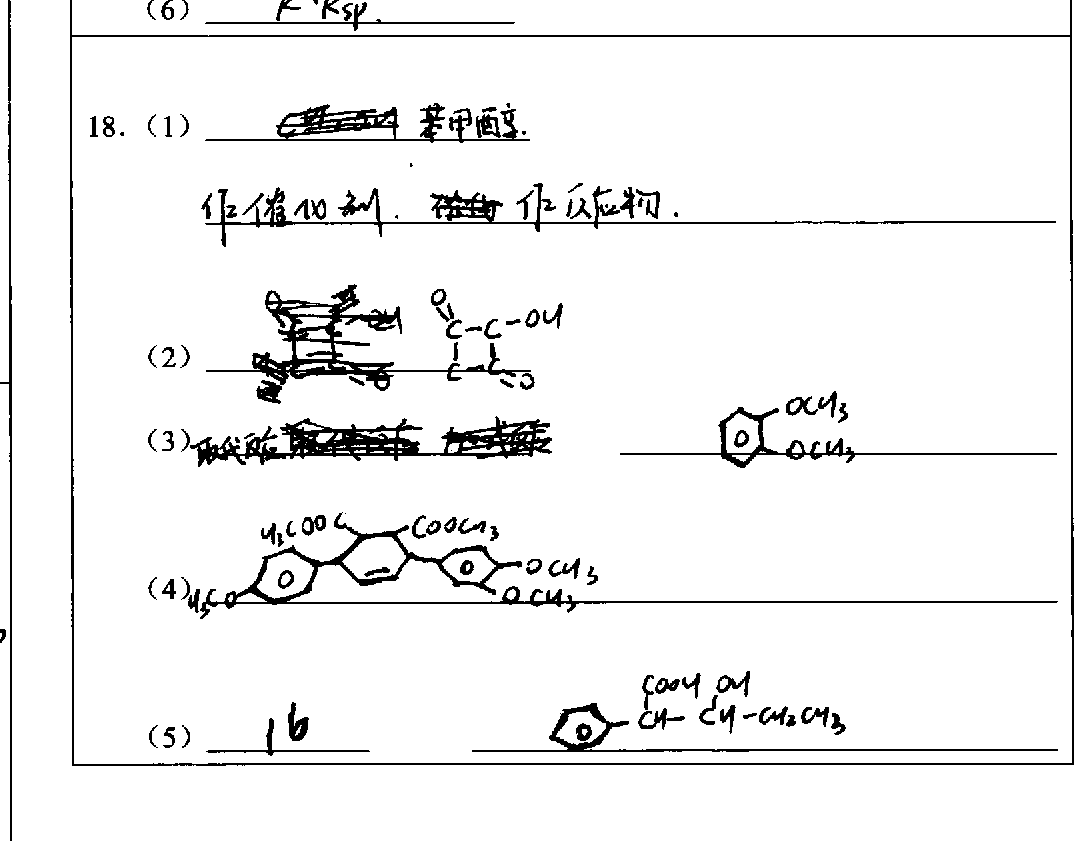 (6) K·Ksp.
18.(1) 苯甲醇.
作催化剂. 作反应物.
O
C-C-OH
(2)
C-C=O
(3) 取代反应 OCH3
OCH3
H3COOC COOCH3
OCH3
(4) H3CO OCH3
COOH OH
(5) 16 CH-CH-CH2CH3